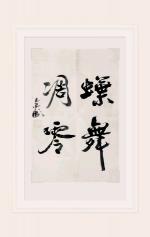 蝶舞
凋零